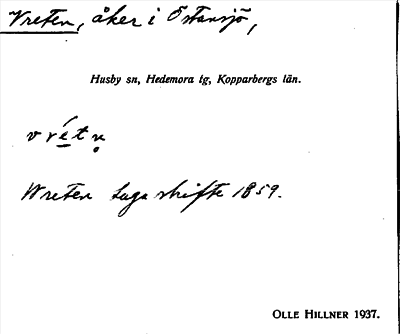 Vreten, åker i Östansjö,
Husby sn, Hedemora tg, Kopparbergs län.
vrétn̥
Wreten Laga skifte 1859.
OLLE HILLNER 1937.